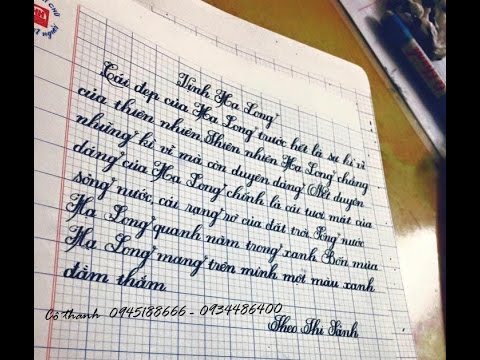 Vịnh Hạ Long
Cái đẹp của Hạ Long trước hết là sự kì vĩ
của thiên nhiên. Thiên nhiên Hạ Long chẳng
những kì vĩ mà còn duyên dáng. Nét duyên
dáng của Hạ Long chính là cái tươi mát của
sóng nước, cái rạng rỡ của đất trời. Sóng nước
Hạ Long quanh năm trong xanh. Bốn mùa
Hạ Long mang trên mình một màu xanh
đằm thắm
Theo Thi Sảnh
Cô thanh 0945188666 - 0934486400